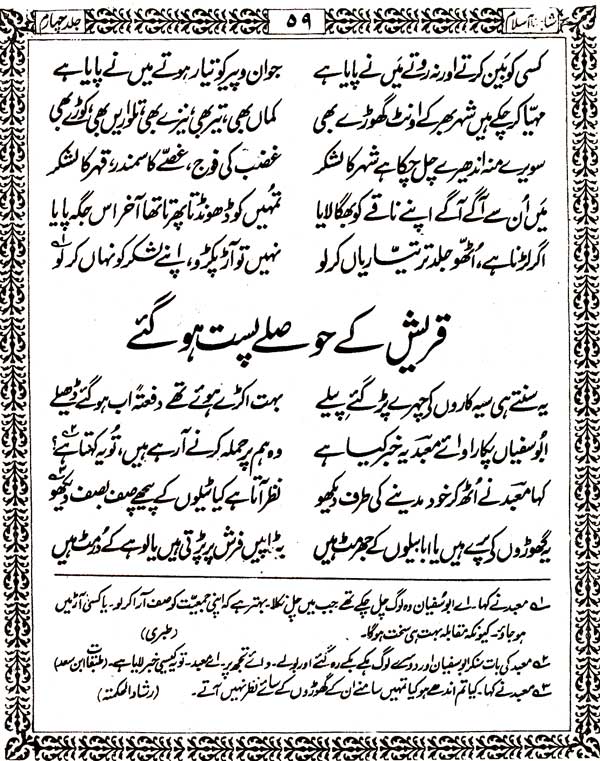 شاہنامۂ اسلام ۵۹ جلد چہارم
کسی کو بَین کرتے اور نہ روتے مَیں نے پایا ہے جوان و پیر کو تیار ہوتے میں نے پایا ہے
مہیّا کر چکے ہیں شہر بھر کے اونٹ گھوڑے بھی کماں بھی، تیر بھی نیزے بھی تلواریں بھی کوڑے بھی
سویرے منہ اندھیرے چل چکا ہے شہر کا لشکر غضب کی فوج، غصّے کا سمندر، قہر کا لشکر
مَیں اُن سے آگے آگے اپنے ناقے کو بھگا لایا تمہیں کو ڈھونڈتا پھرتا تھا آخر اس جگہ پایا
اگر لڑنا ہے، اُٹھو جلد تر تیّاریاں کر لو نہیں تو آڑ پکڑو، اپنے لشکر کو نہاں کر لو ۱؎
قریش کے حوصلے پست ہو گئے
یہ سنتے ہی سیہ کاروں کی چہرے پڑ گئے پیلے بہت اکڑے ہوئے تھے دفعتہً اب ہو گئے ڈھیلے
ابوسفیاں پکارا وائے معبد یہ خبر کیا ہے وہ ہم پر حملہ کرنے آ رہے ہیں، تُو یہ کہتا ہے؟ ۲؎
کہا معبد نے اُٹھ کر خود مدینے کی طرف دیکھو نظر آتا ہے کیا ٹیلوں کے پیچھے صف بصف دیکھو ۳؎
یہ گھوڑوں کی پرے ہیں یا ابابیلوں کے جھرمٹ ہیں یہ ٹاپیں فرش پر پڑتی ہیں یا لوہے کے دُرمٹ ہیں
۱؎ معبد نے کہا۔ اے ابوسفیان وہ لوگ چل چکے تھے جب میں چل نکلا۔ بہتر ہے کہ اپنی جمعیت کو صف آرا کر لو۔ یا کسی آڑ میں
ہو جاؤ۔ کیونکہ مقابلہ بہت ہی سخت ہوگا۔ (طبری)
۲؎ معبد کی بات سنکر ابوسفیان اور دوسرے لوگ ہکے بکے رہ گئے اور بولے۔ وائے تجھ پر اے معبد۔ تو یہ کیسی خبر لایا ہے۔ (طبقات ابن سعد)
۳؎ معبد نے کہا۔ کیا تم اندھے ہو کیا تمہیں سامنے ان کے گھوڑوں کے سائے نظر نہیں آتے۔ (ارشاد الحکمتہ)